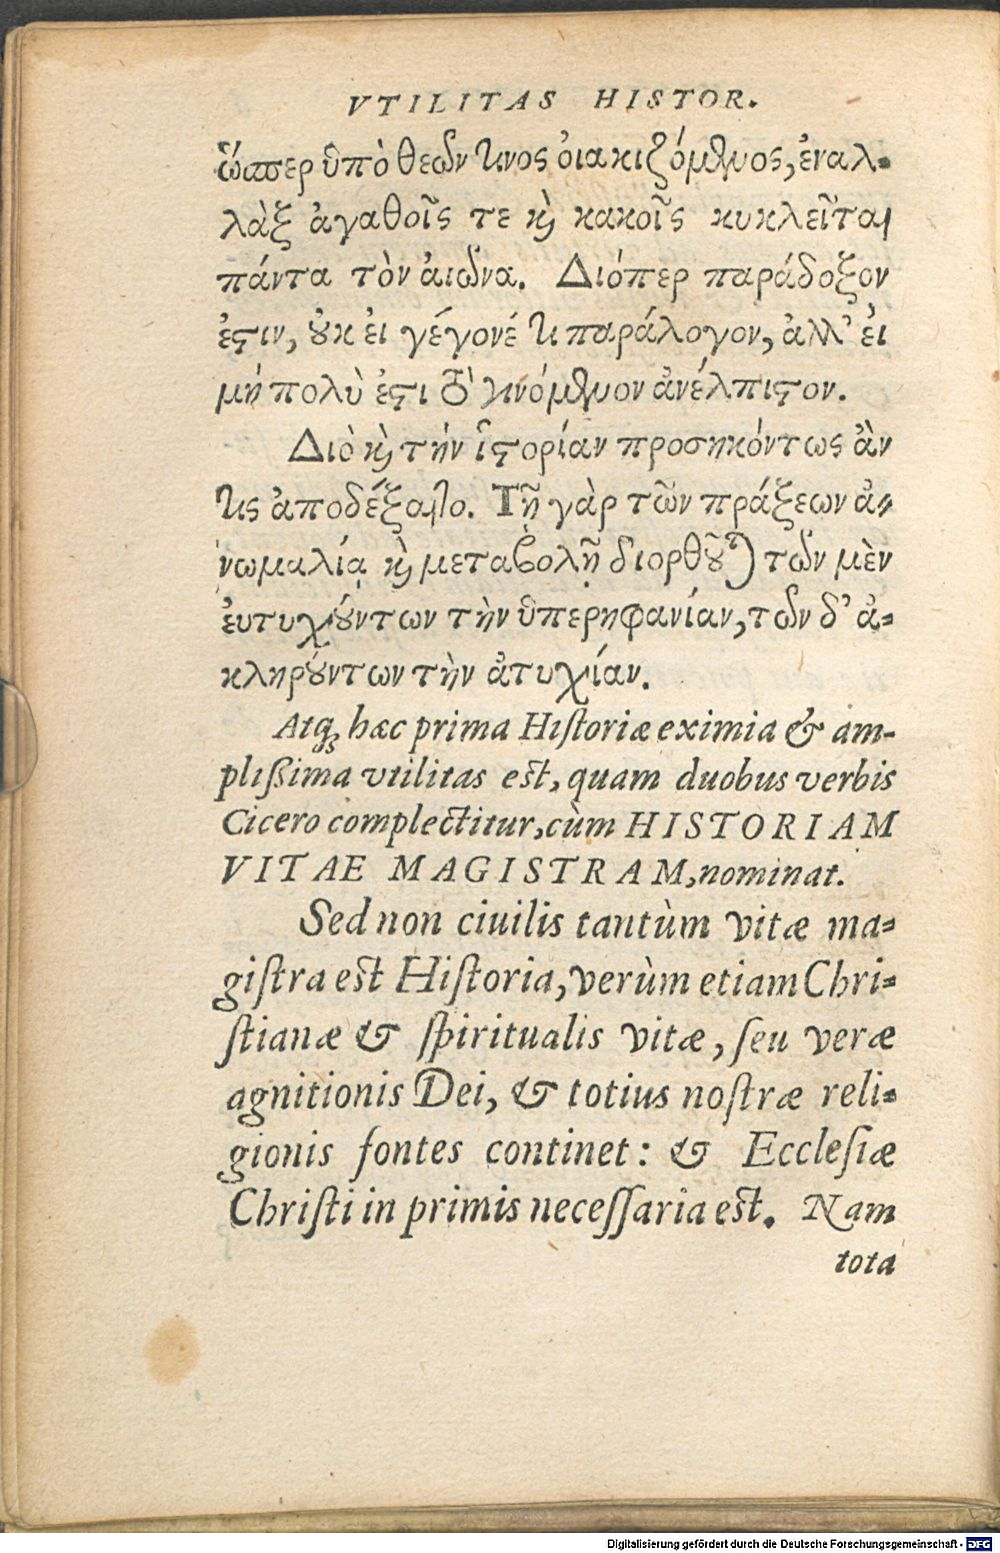 VTILITAS HISTOR.
ὥσπερ ὑπὸ θεῶν τινος ὀιακιζόμενος, ἐναλ-
λὰξ ἀγαθοῖς τε καὶ κακοῖς κυκλεῖται
πάντα τὸν ἀιῶνα. Διόπερ παράδοξον
ἐστιν, οὐκ ἐι γέγονέ τι παράλογον, ἀλλ' ἐι
μὴ πολὺ ἐστι τὸ γινόμενον ἀνέλπιστον.
Διὸ καὶ τὴν ἱστορίαν προσηκόντως ἂν
τις ἀποδέξαιτο. Τῇ γὰρ τῶν πράξεων ἀ-
νωμαλίᾳ καὶ μεταβολῇ διορθοῦται τῶν μὲν
ἐυτυχούντων τὴν ὑπερηφανίαν, τῶν δ' ἀ-
κληρούντων τὴν ἀτυχίαν.
Atq; hæc prima Historiæ eximia & am-
plißima vtilitas est, quam duobus verbis
Cicero complectitur, cùm HISTORIAM
VITAE MAGISTRAM, nominat.
Sed non ciuilis tantùm vitæ ma-
gistra est Historia, verùm etiam Chri-
stianæ & spiritualis vitæ, seu veræ
agnitionis Dei, & totius nostræ reli-
gionis fontes continet: & Ecclesiæ
Christi in primis necessaria est. Nam
tota
Digitalisierung gefördert durch die Deutsche Forschungsgemeinschaft - DFG